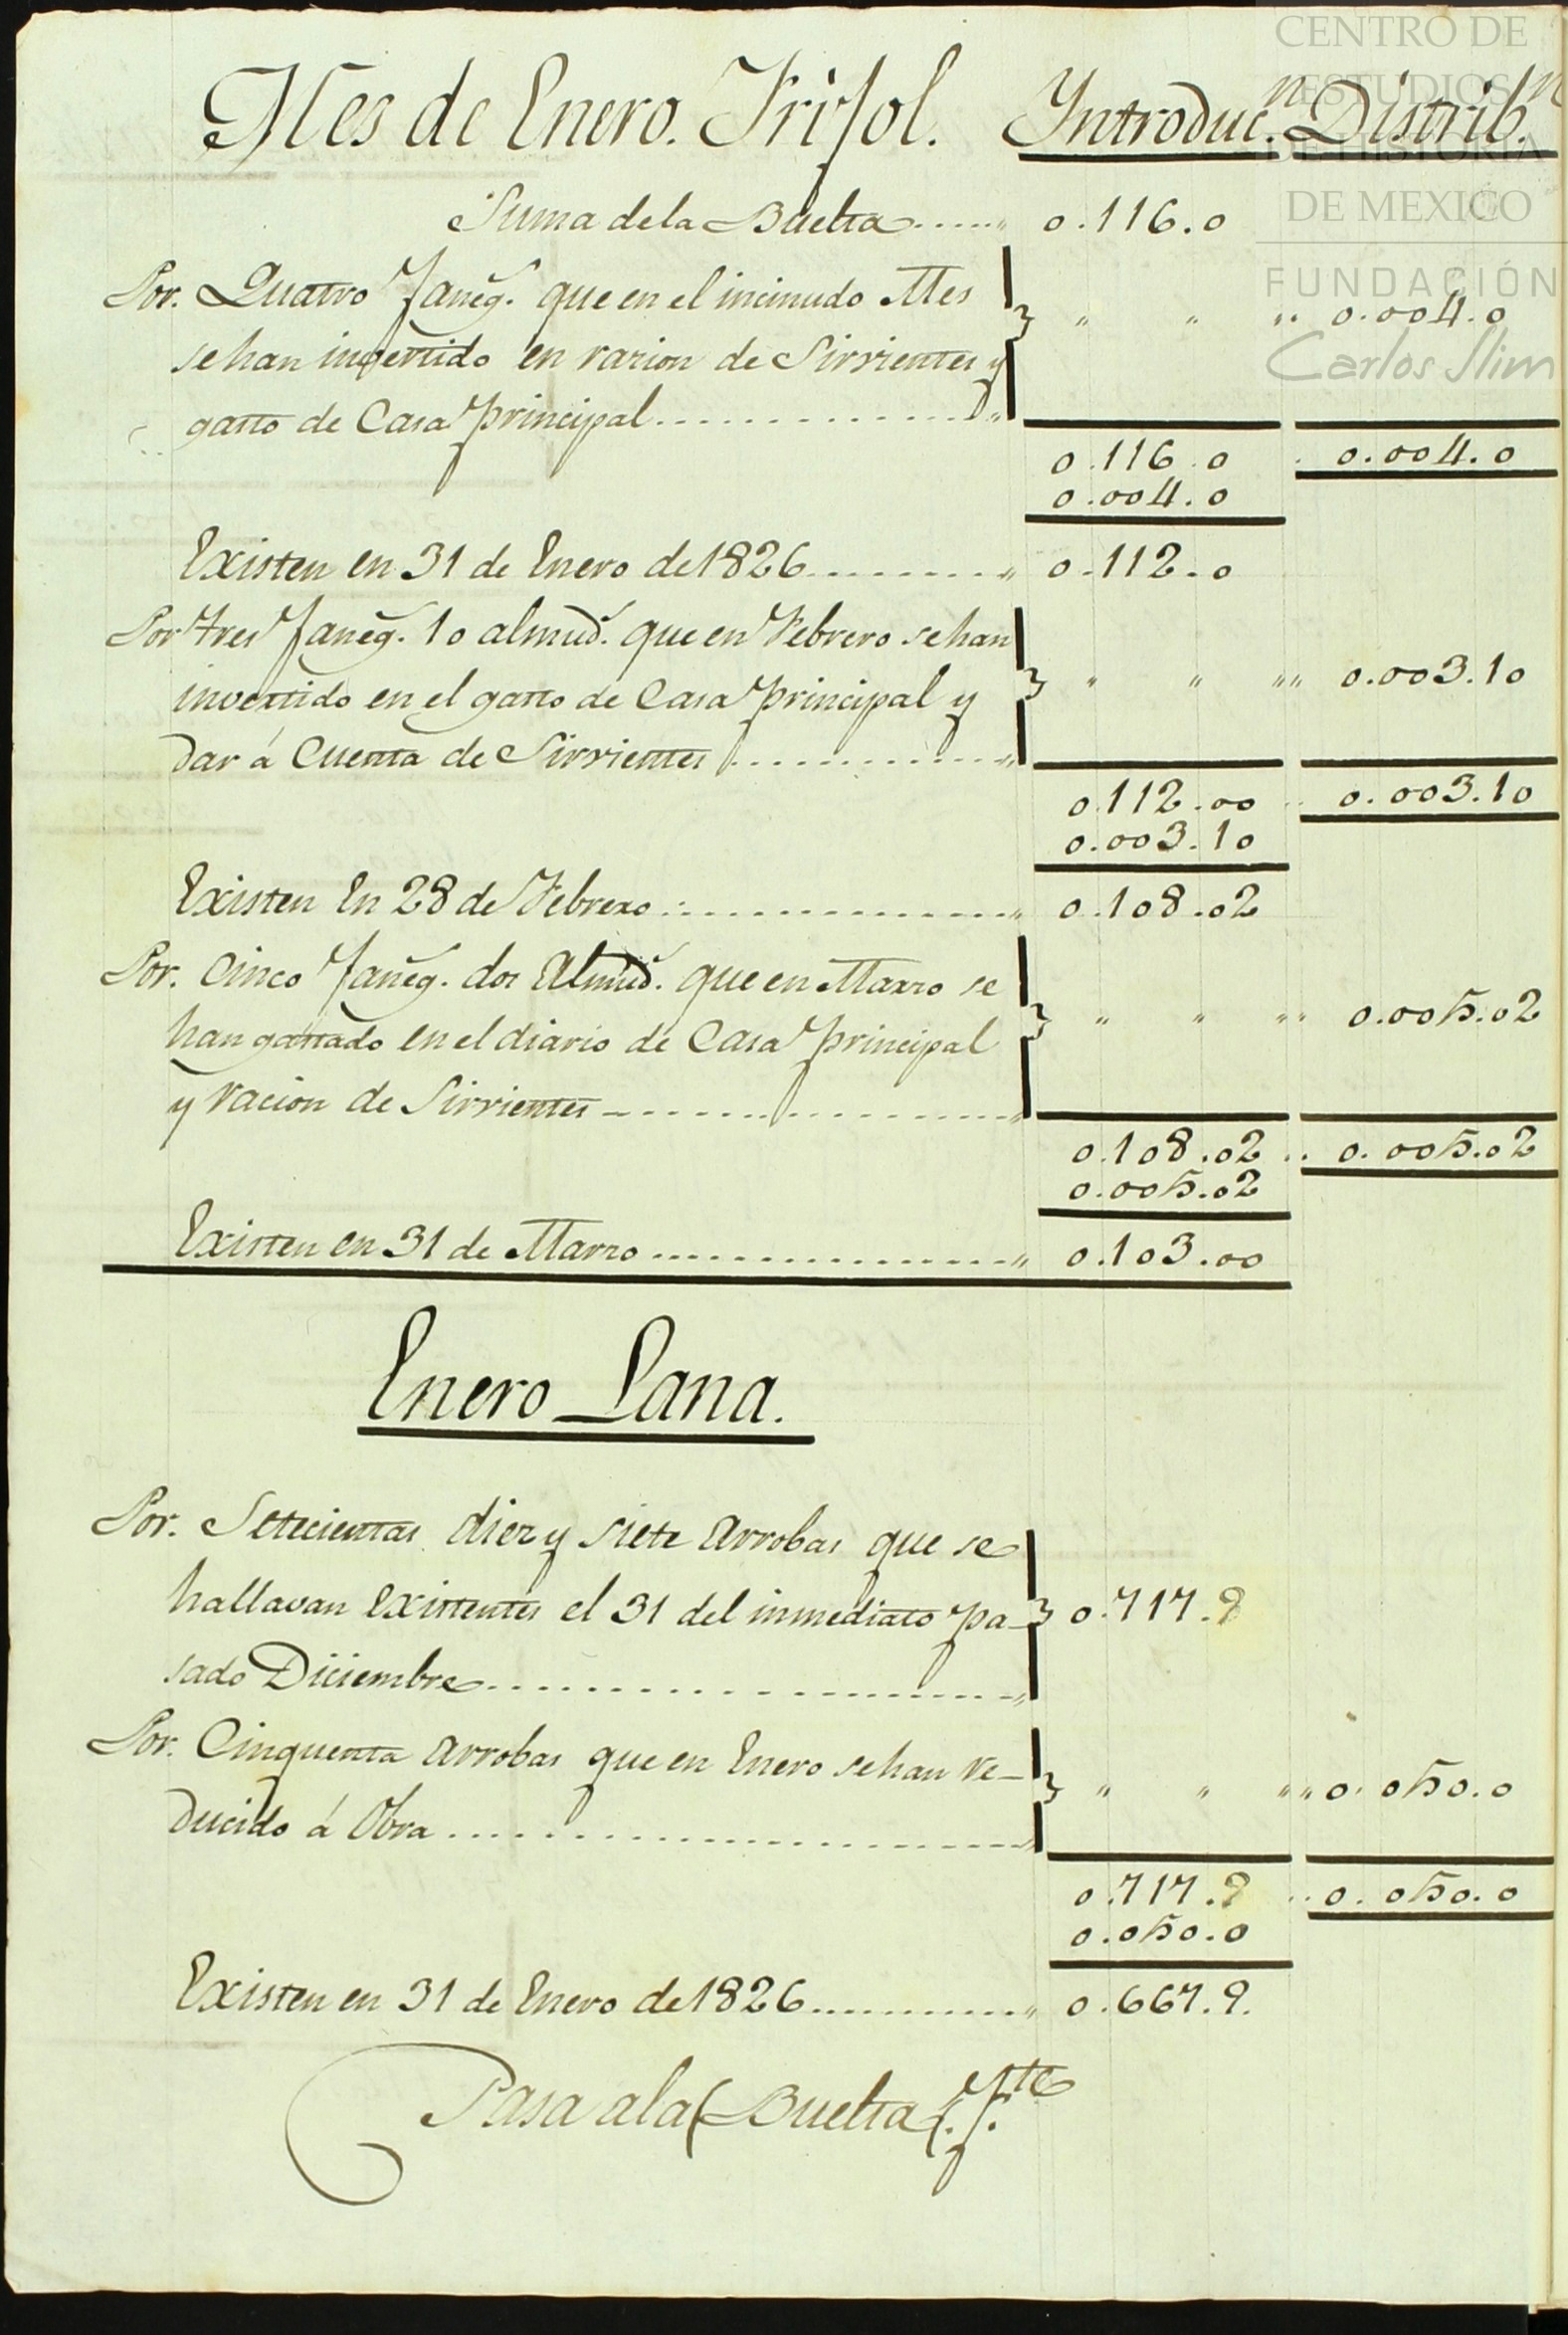 Mes de Enero. Frisol. Introduc.n Distrib.n
Suma dela Buelta 0.116.0
Por. Quatro faneg.s que en el incinuado Mes
se han invertido en racion de Sirvientes y " " " 0.004.0
gasto de Casa principal
0.116.0 0.004.0
0.004.0
Existen en 31 de Enero de 1826 0.112.0
Por tres faneg.s 10 almud.s que en Febrero se han
invertido en el gasto de Casa principal y " " " 0.003.10
dar á Cuenta de Sirvientes
0.112.00 0.003.10
0.003.10
Existen En 28 de Febrero 0.108.02
Por. Cinco faneg.s dos Almud.s que en Marzo se
han gastado en el diario de Casa principal " " " 0.005.02
y racion de Sirvientes
0.108.02 0.005.02
0.005.02
Existen en 31 de Marzo 0.103.00
Enero Lana.
Por. Setecientas diez y siete arrobas que se
hallavan Existentes el 31 del inmediato pa- 0.717.9
sado Diciembre
Por. Cinquenta arrobas que en Enero se han re- " " " 0.050.0
ducido á Obra
0.717.9 0.050.0
0.050.0
Existen en 31 de Enero de 1826 0.667.9.
Pasa ala Buelta
CENTRO DE
ESTUDIOS
DE HISTORIA
DE MEXICO
FUNDACIÓN
Carlos Slim